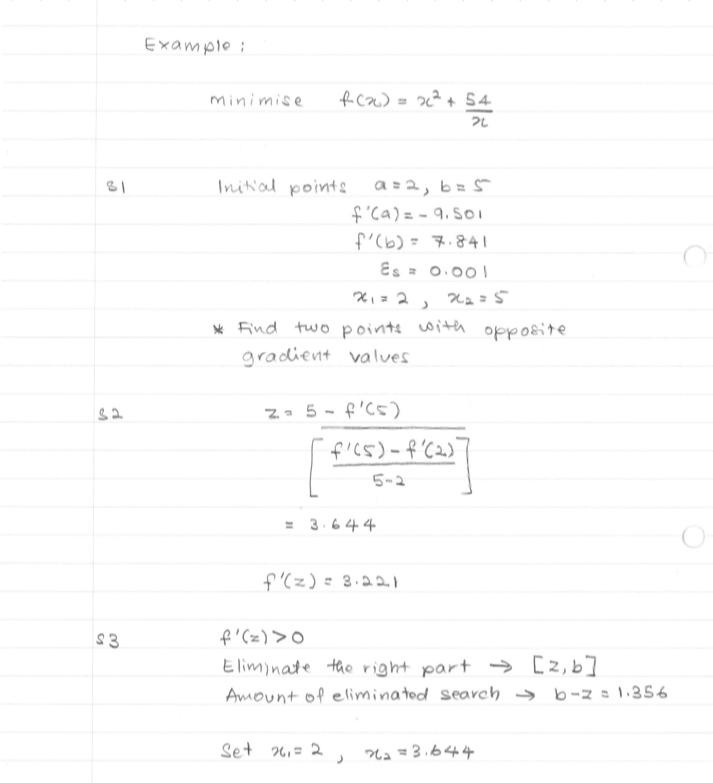 Example:
minimise f(x) = x² + 54/x
S1 Initial points a = 2, b = 5
f'(a) = -9.501
f'(b) = 7.841
εs = 0.001
x₁ = 2, x₂ = 5
* Find two points with opposite
gradient values
S2 z = 5 - f'(5)
[f'(5) - f'(2)
5-2]
= 3.644
f'(z) = 3.221
S3 f'(z) > 0
Eliminate the right part → [z, b]
Amount of eliminated search → b-z = 1.356
Set x₁ = 2, x₂ = 3.644